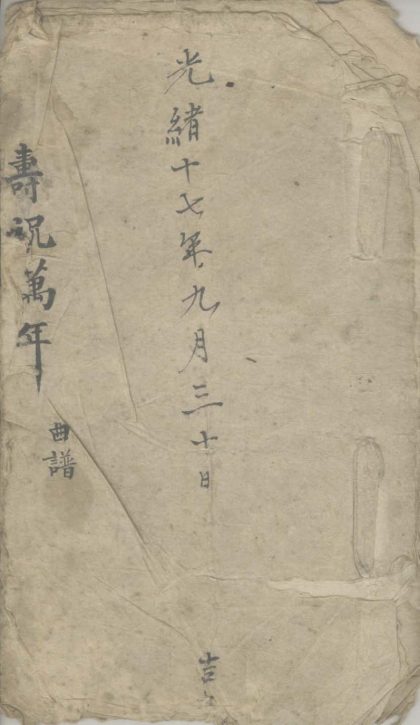 光緒十七年九月三十日
吉
壽祝萬年
曲譜